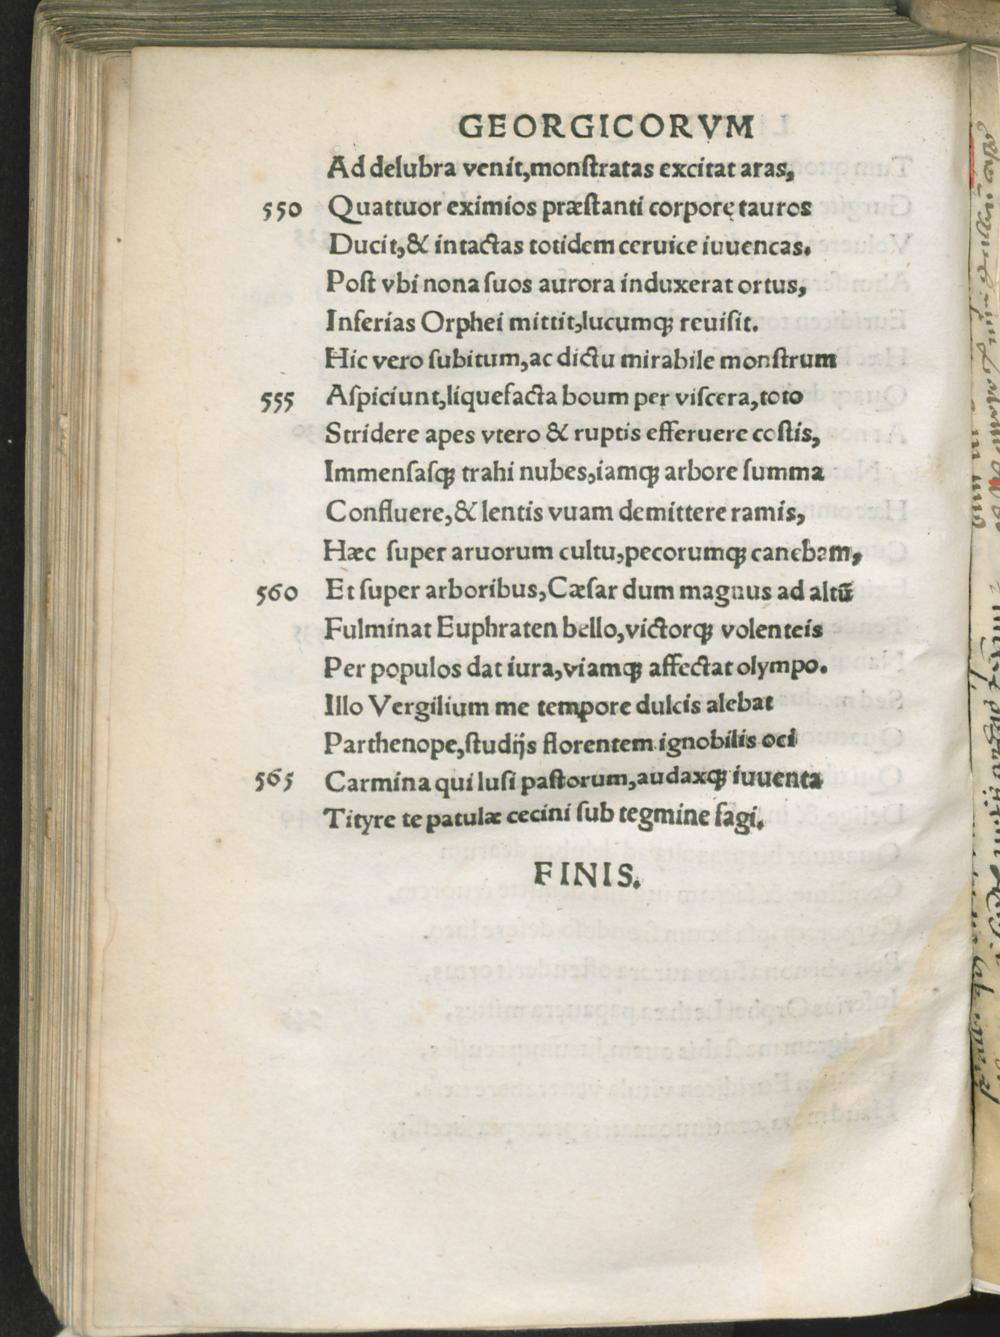 GEORGICORVM
Ad delubra venit,monſtratas excitat aras,
550 Quattuor eximios præſtanti corporę tauros
Ducit,& intactas totidem ceruice iuuencas.
Poſt vbi nona ſuos aurora induxerat ortus,
Inferias Orphei mittit,lucumqꝫ reuiſit.
Hic vero ſubitum,ac dictu mirabile monſtrum
555 Aſpiciunt,liquefacta boum per viſcera,toto
Stridere apes vtero & ruptis efferuere coſtis,
Immenſaſqꝫ trahi nubes,iamqꝫ arbore ſumma
Confluere,& lentis vuam demittere ramis,
Hæc ſuper aruorum cultu,pecorumqꝫ canebam,
560 Et ſuper arboribus,Cæſar dum magnus ad altū
Fulminat Euphraten bello,victorqꝫ volenteis
Per populos dat iura,viamqꝫ affectat olympo.
Illo Vergilium me tempore dulcis alebat
Parthenope,ſtudijs florentem ignobilis oci
565 Carmina qui luſi paſtorum,audaxqꝫ iuuenta
Tityre te patulæ cecini ſub tegmine fagi.
FINIS.